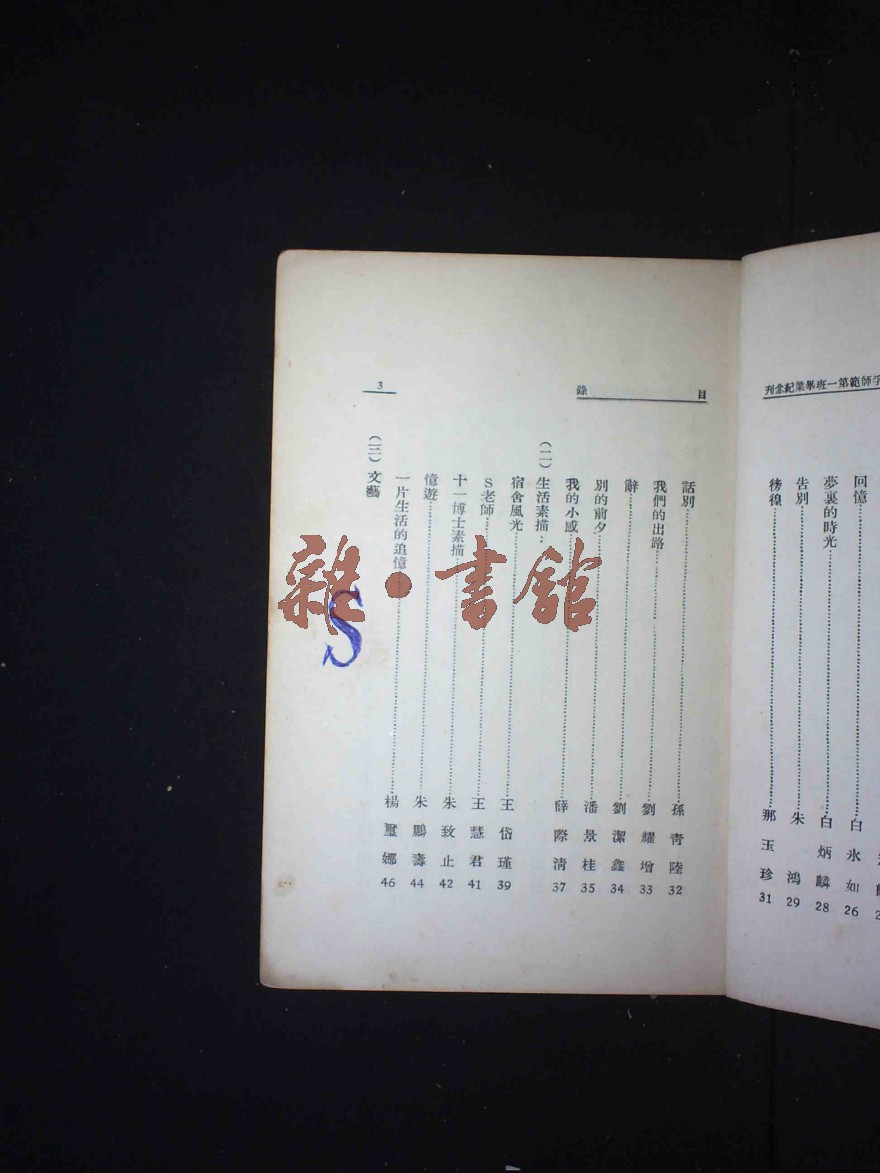 師範第一班畢業紀念刊
回憶 白水如 26
夢裏的時光 白炳麟 28
告別 朱鴻 29
徬徨 那玉珍 31
目錄
3
話別 孫青陸 32
我們的出路 劉耀增 33
辭 劉潔鑫 34
別的前夕 潘景桂 35
我的小感 薛際清 37
(二)生活素描:
宿舍風光 王岱瑾 39
S老師 王慧君 41
十一博士素描 朱致止 42
憶遊 朱鵬壽 44
一片生活的追憶 楊璽娜 46
(三)文藝
S
雜·書館